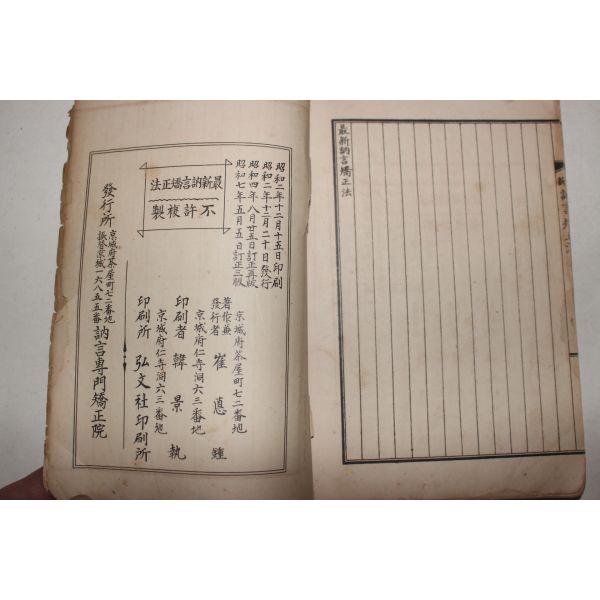 最新訥言矯正法
最新訥言矯正法
不許複製
昭和二年十二月十五日印刷
昭和二年十二月二十日發行
昭和四年八月廿五日訂正再版
昭和七年五月五日訂正三版
京城府茶屋町七二番地
著作兼發行者 崔 鍾
京城府仁寺洞六三番地
印刷者 韓景執
京城府仁寺洞六三番地
印刷所 弘文社印刷所
發行所
京城府茶屋町七二番地
振替京城一六八五五番
訥言專門矯正院